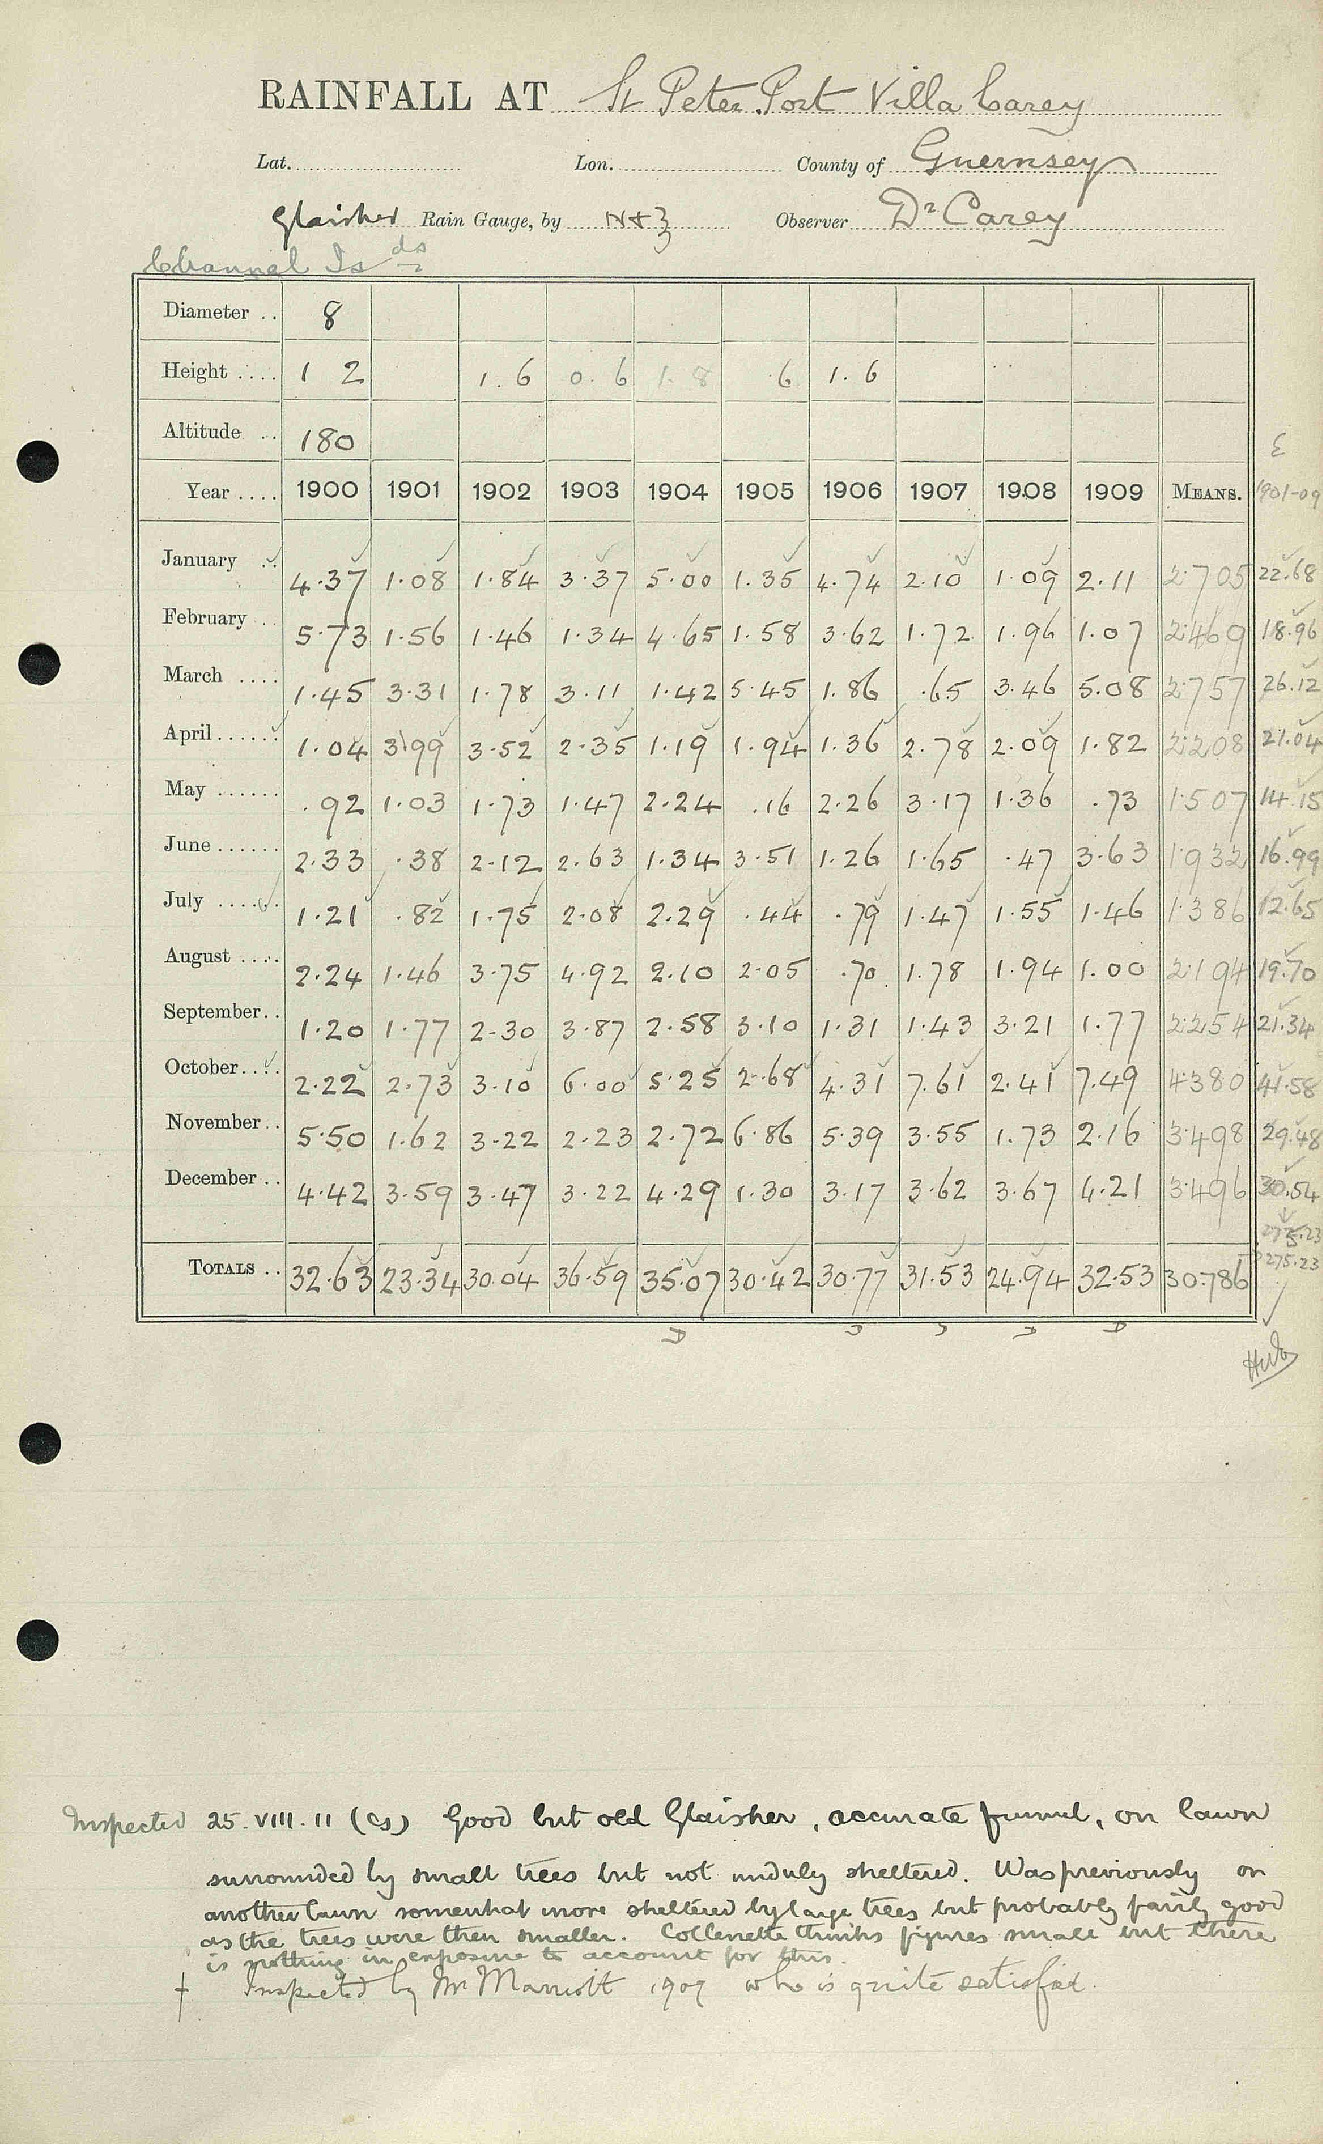 RAINFALL AT St Peter Port Villa Carey
Lat. Lon. County of Guernsey
Glaisher Rain Gauge, by N&Z Observer Dr Carey
Channel Is ds
Diameter .. 8
Height .... 1 2 1. 6 0. 6 1. 8 6 1. 6
Altitude .. 180
Year .... 1900 1901 1902 1903 1904 1905 1906 1907 1908 1909 MEANS. 1901-09
January 4.37 1.08 1.84 3.37 5.00 1.35 4.74 2.10 1.09 2.11 2.705 22.68
February 5.73 1.56 1.46 1.34 4.65 1.58 3.62 1.72 1.96 1.07 2.469 18.96
March 1.45 3.31 1.78 3.11 1.42 5.45 1.86 .65 3.46 5.08 2.757 26.12
April 1.04 3.99 3.52 2.35 1.19 1.94 1.36 2.78 2.09 1.82 2.208 21.04
May .92 1.03 1.73 1.47 2.24 .16 2.26 3.17 1.36 .73 1.507 14.15
June 2.33 .38 2.12 2.63 1.34 3.51 1.26 1.65 .47 3.63 1.932 16.99
July 1.21 .82 1.75 2.08 2.29 .44 .79 1.47 1.55 1.46 1.386 12.65
August 2.24 1.46 3.75 4.92 2.10 2.05 .70 1.78 1.94 1.00 2.194 19.70
September 1.20 1.77 2.30 3.87 2.58 3.10 1.31 1.43 3.21 1.77 2.254 21.34
October 2.22 2.73 3.10 6.00 5.25 2.68 4.31 7.61 2.41 7.49 4.380 41.58
November 5.50 1.62 3.22 2.23 2.72 6.86 5.39 3.55 1.73 2.16 3.498 29.48
December 4.42 3.59 3.47 3.22 4.29 1.30 3.17 3.62 3.67 4.21 3.496 30.54
275.23
TOTALS .. 32.63 23.34 30.04 36.59 35.07 30.42 30.77 31.53 24.94 32.53 30.786 275.23
Inspected 25. VIII. 11 (CS) Good but old Glaisher, accurate funnel, on lawn
surrounded by small trees but not unduly sheltered. Was previously on
another lawn somewhat more sheltered by large trees but probably fairly good
as the trees were then smaller. Collenette thinks figures small but there
is nothing in exposure to account for this.
† Inspected by Mr Marriott 1909 who is quite satisfied.